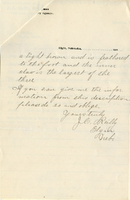 a light brown and is feathered
to the foot and the inner
claw is the largest of the
three
If you can give me the infor
mation from this description
please do so and oblige
Yours truly
Neb